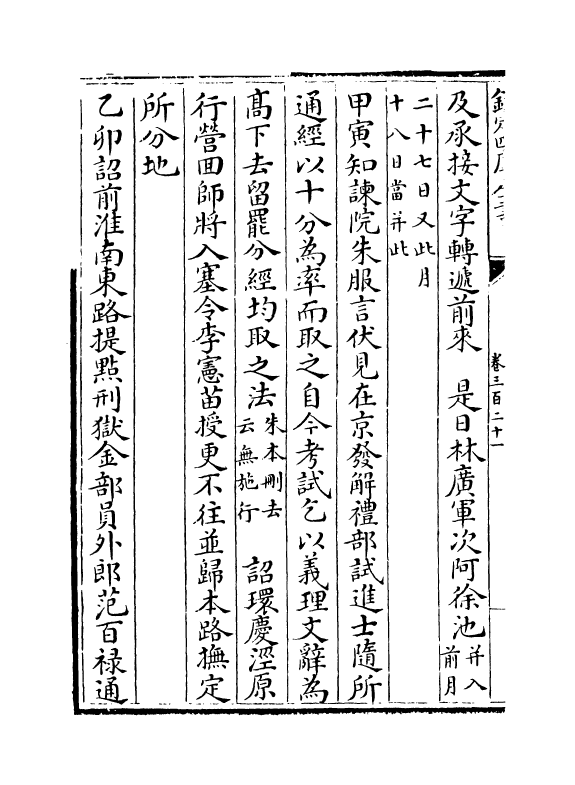 欽定四庫全書
卷三百二十一
及承接文字轉遞前來　是日林廣軍次阿徐池并入前月
二十七日又此月十八日當并此
甲寅知諫院朱服言伏見在京發解禮部試進士隨所
通經以十分為率而取之自今考試乞以義理文辭為
高下去留罷分經均取之法朱本刪去云無施行　詔環慶涇原
行營回師將入塞令李憲苗授更不往並歸本路撫定
所分地
乙卯詔前淮南東路提點刑獄金部員外郎范百禄通